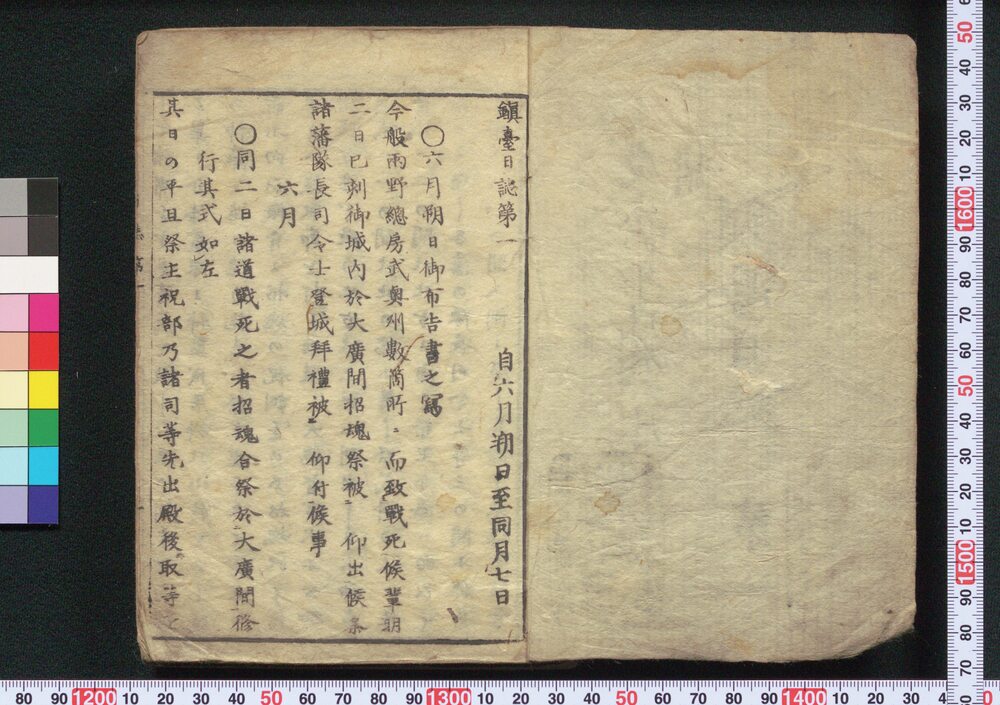 鎭臺日誌第一　自六月朔日至同月七日
〇六月朔日御布告書之寫
今般兩野總房武奥州數箇所ニ而致戰死候輩明
二日巳刻御城内於大廣間招魂祭被　仰出候条
諸藩隊長司令士登城拜禮被　仰付候事
六月
〇同二日諸道戰死之者招魂合祭於大廣間修
行其式如左
其日の平旦祭主祝部乃諸司等先出殿後取等
80 90 1200 10 20 30 40 50 60 70 80 90 1300 10 20 30 40 50 60 70 80 90 1400 10 20 30
50 40 30 20 10 1600 90 80 70 60 50 40 30 20 10 1500 90 80 70